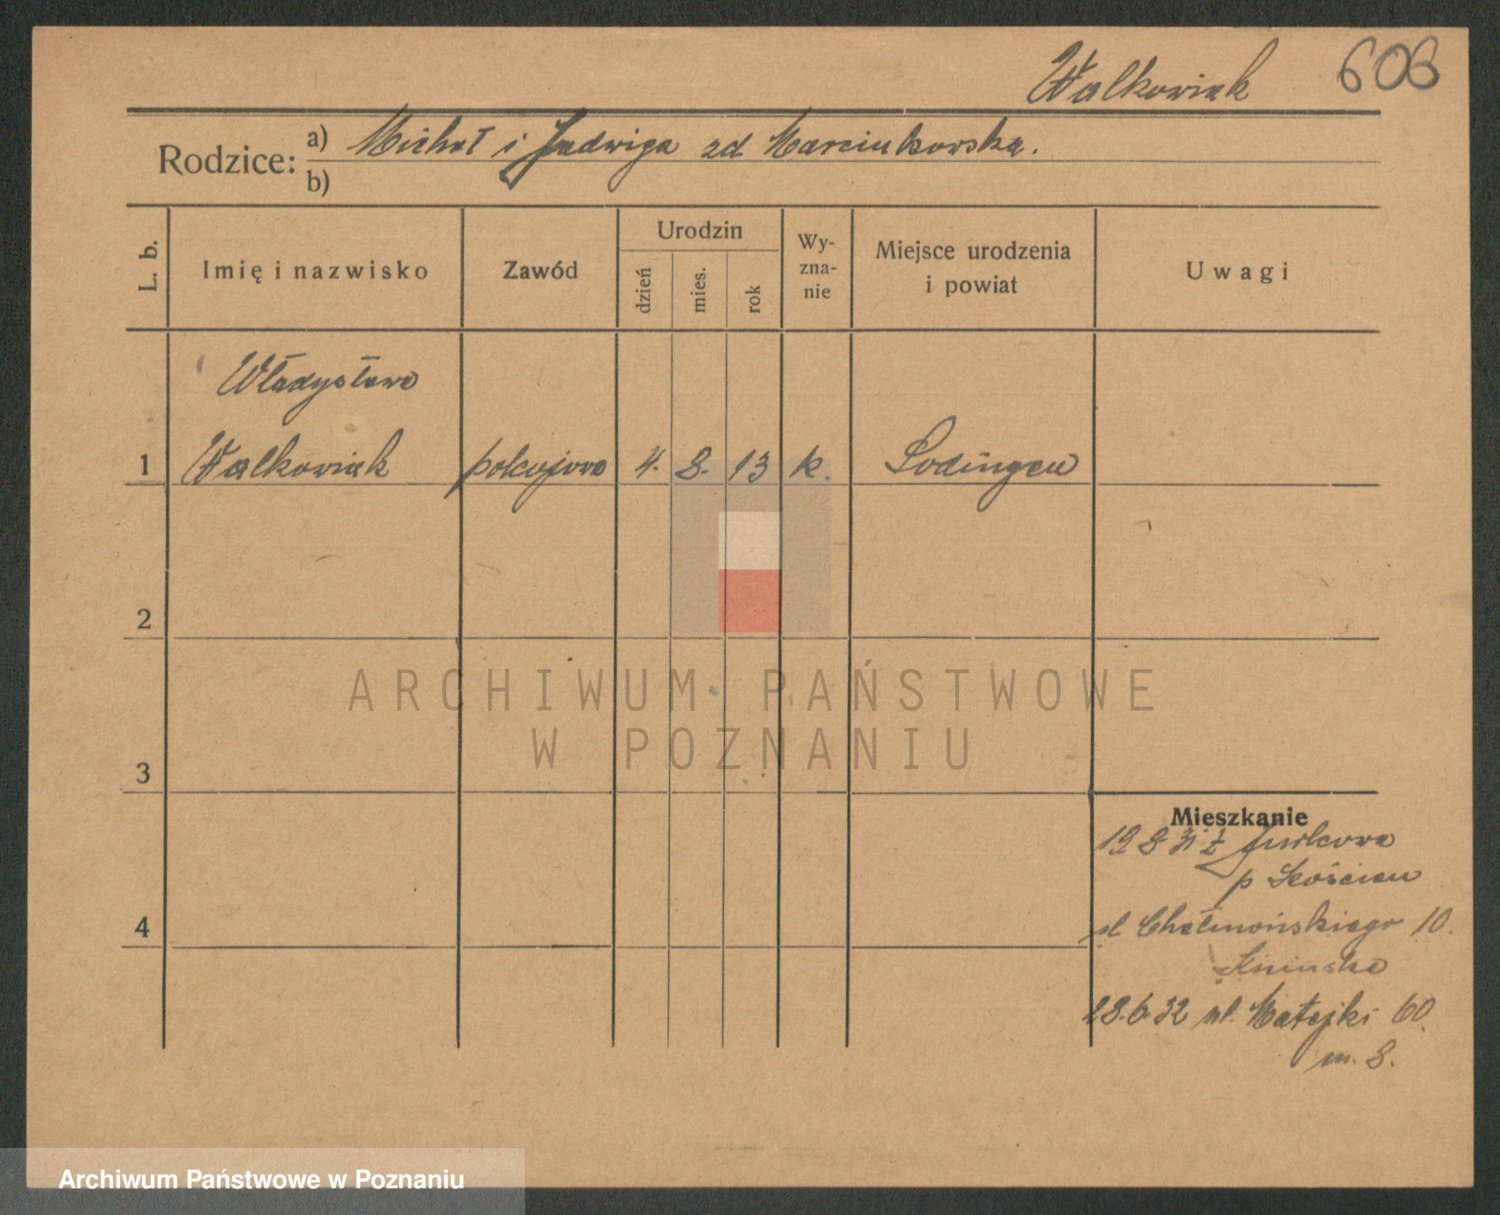 Walkowiak 606
Rodzice: a) Michał i Jadwiga zd Marcinkowska.
b)
L. b. Imię i nazwisko Zawód Urodzin dzień mies. rok Wyznanie Miejsce urodzenia i powiat Uwagi
Władysława
1 Walkowiak pokojowa 4. 8. 13 k. Sodingen
2
ARCHIWUM PAŃSTWOWE
W POZNANIU
3
Mieszkanie
19 8 31 z Jurkowa
p Kościan
4 ul Chełmońskiego 10.
28.6.32 ul. Matejki 60
m. 8.
Archiwum Państwowe w Poznaniu